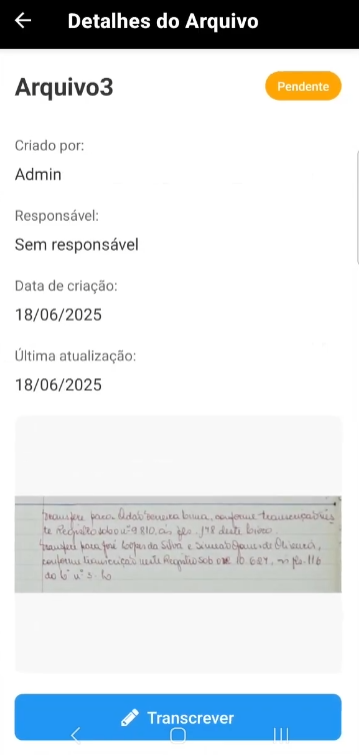 Detalhes do Arquivo
Arquivo3
Pendente
Criado por:
Admin
Responsável:
Sem responsável
Data de criação:
18/06/2025
Última atualização:
18/06/2025
Transfere para conforme
te Registro sob o nº 9810, às fls. 178 deste livro.
Transfere para José da Silva e de Oliveira,
conforme transcrição neste Registro sob o nº 10.687, fls. 116
do
Transcrever